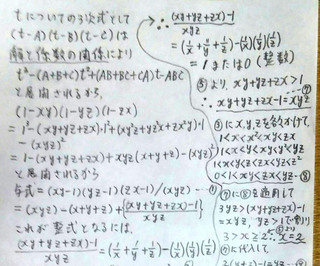 tについての3次式として
(t-A)(t-B)(t-C)は
解と係数の関係により
t³-(A+B+C)t²+(AB+BC+CA)t-ABC
と展開されるから、
(1-xy)(1-yz)(1-zx)
=1³-(xy+yz+zx)・1²+(xy²z+yz²x+zx²y)・1
-(xyz)²
=1-(xy+yz+zx)+xyz(x+y+z)-(xyz)²
と展開されるから
与式=(xy-1)(yz-1)(zx-1)/(xyz)
=(xyz)-(x+y+z)+{(xy+yz+zx)-1}/xyz
これが整式となるには、
(xy+yz+zx)-1/xyz=(1/x+1/y+1/z)-(1/x)(1/y)(1/z)
∴(xy+yz+zx)-1/xyz
=(1/x+1/y+1/z)-(1/x)(1/y)(1/z)
=1または0(整数)
⑤より、xy+yz+zx>1
∴xy+yz+zx-1=xyz
1<x<x²<xy<zx
1<x<y<xy<y²<yz
1<x<y<z<zx<yz<z²
0<1<x<y<z<xy<yz
⑦に⑧を適用して
3yz>(xy+yz+zx)-1
=xyz、yz>1で割り
3>x≧2
∴x=2
に代入して